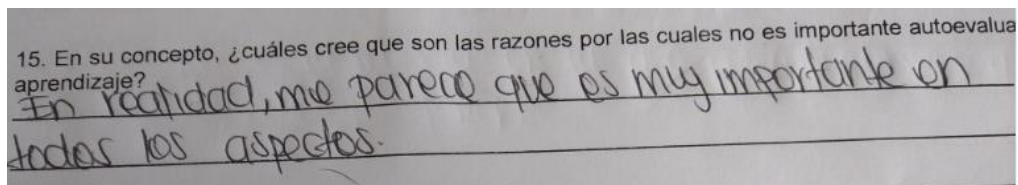 15. En su concepto, ¿cuáles cree que son las razones por las cuales no es importante autoevalua
aprendizaje?
En realidad, me parece que es muy importante en
todos los aspectos.